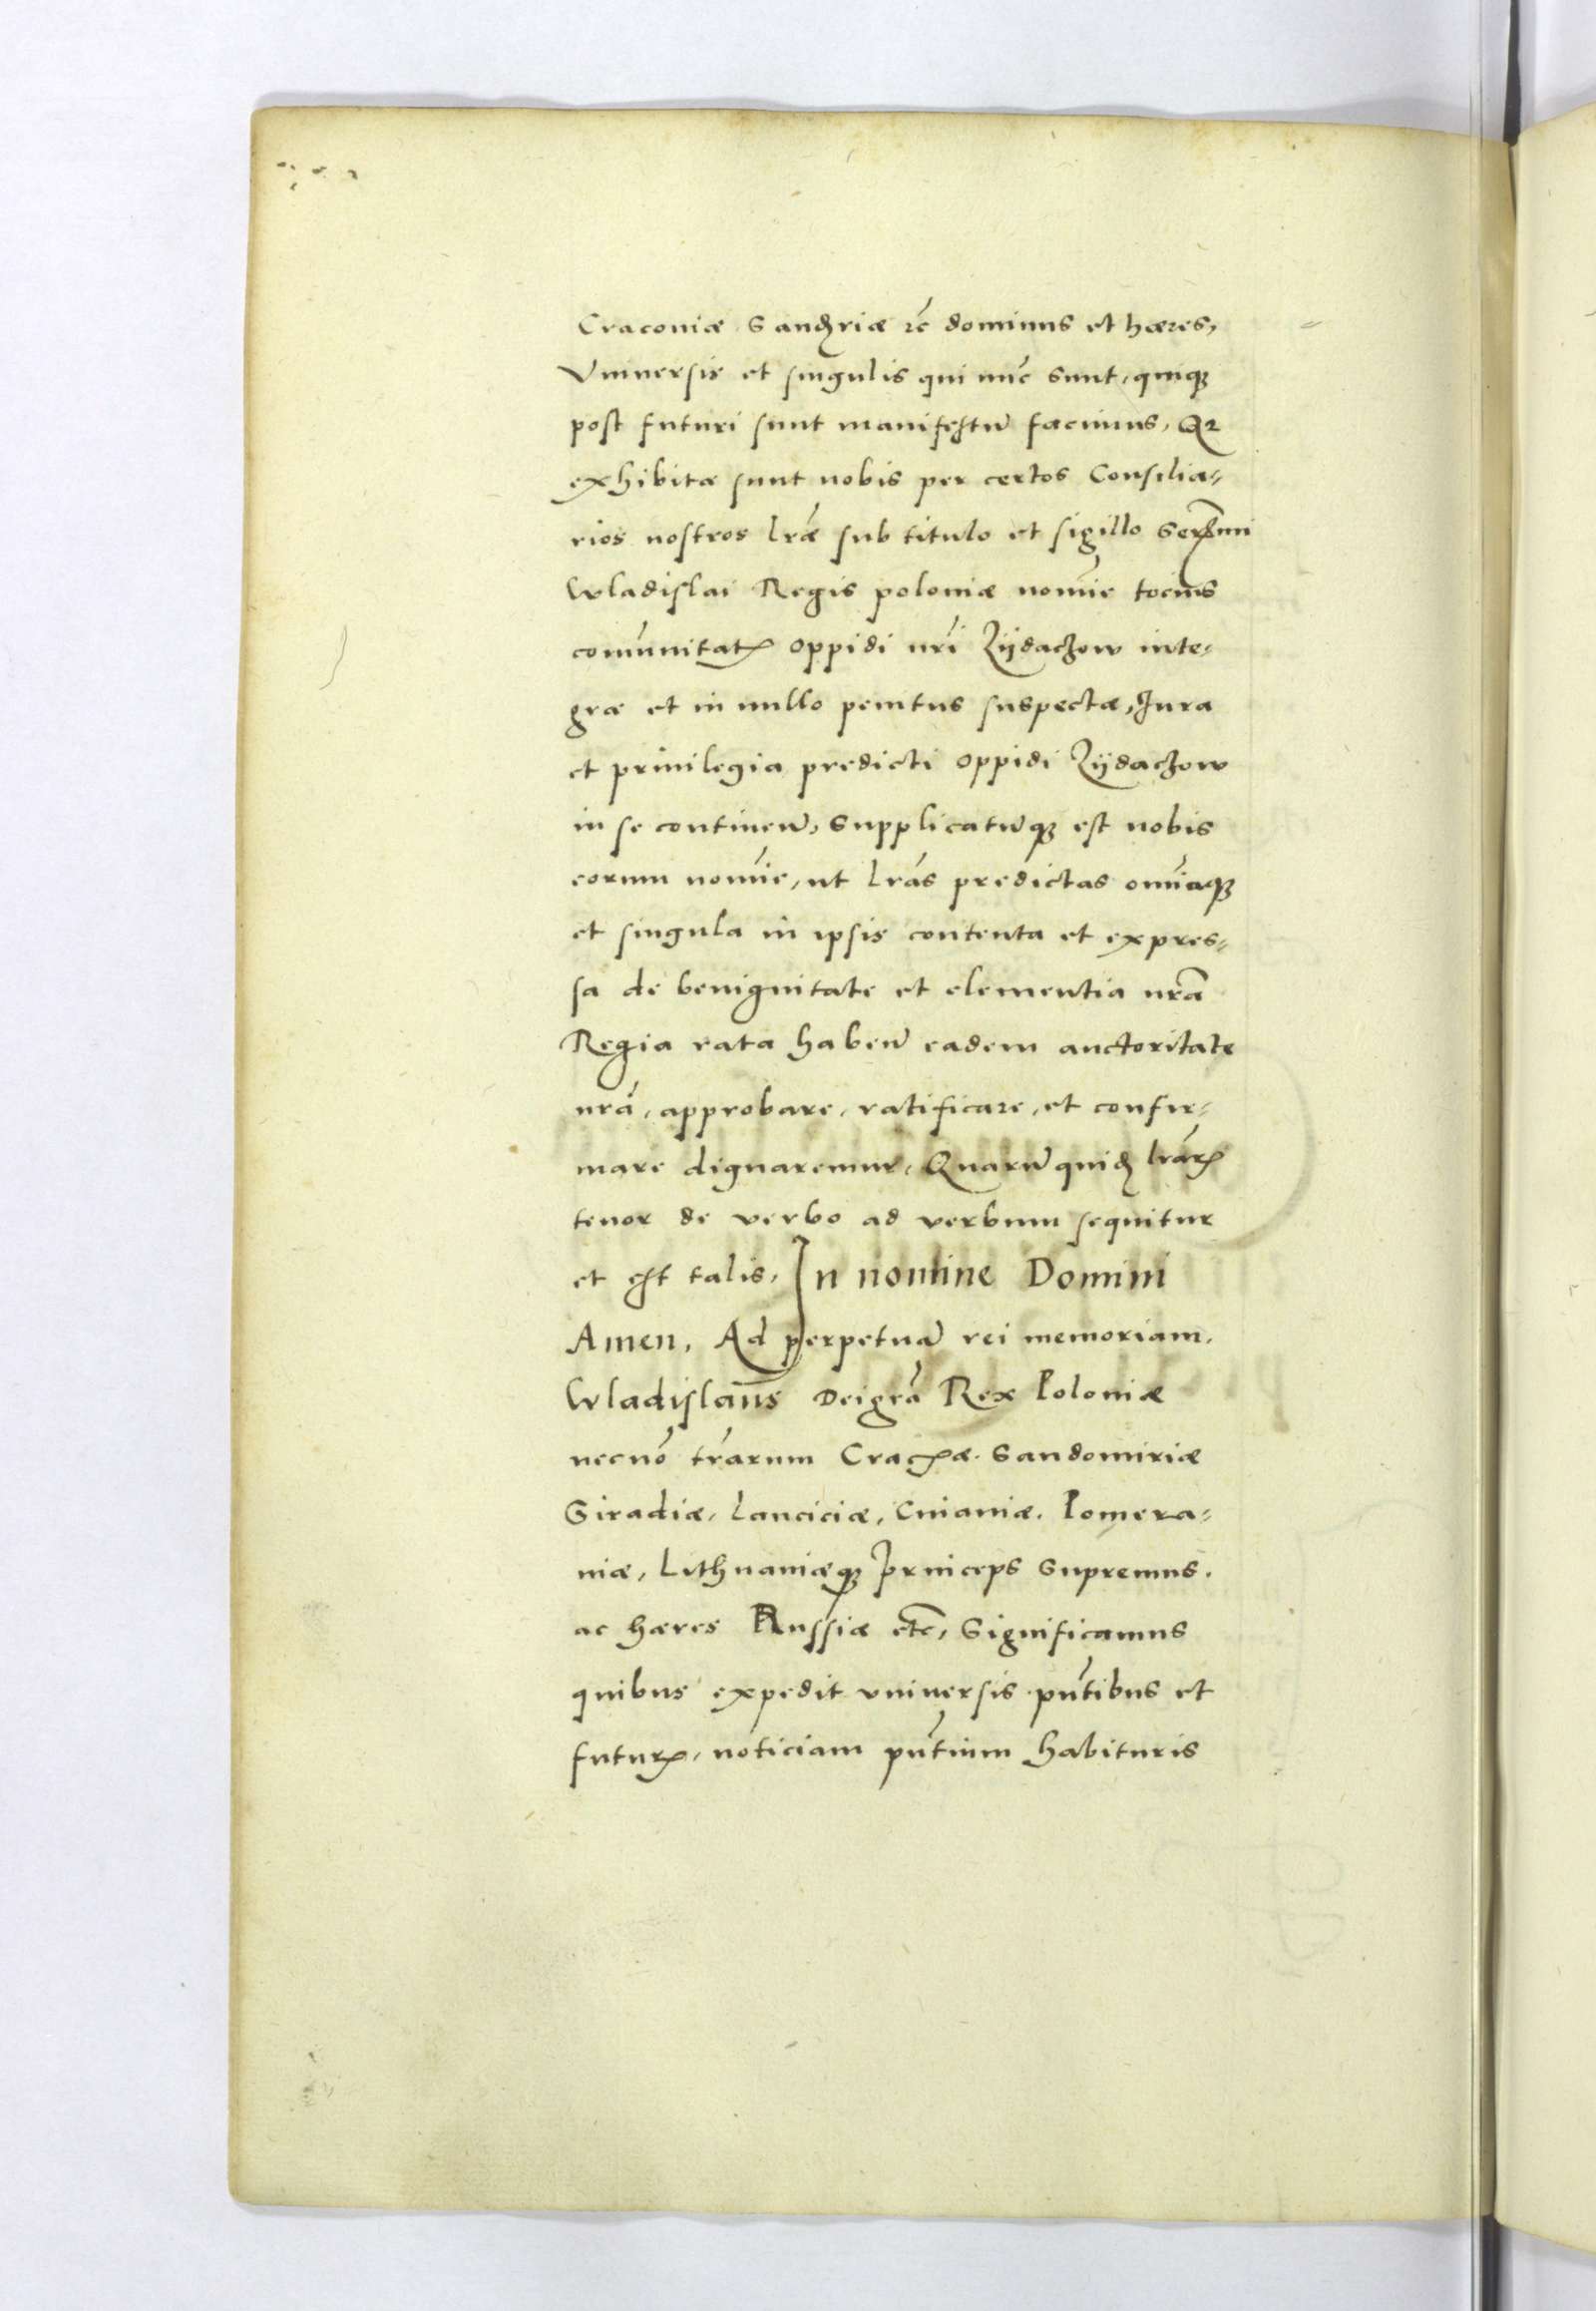 Cracoviæ Sandꝫriæ ꝛc̃ dominus et hæres,
Vniuersis et singulis qui nũc sunt, quiqꝫ
post futuri sunt manifestũ facimus, Qꝛ
exhibitæ sunt nobis per certos Consilia=
rios nostros lr̃æ sub titulo et sigillo Serẽmi
Wladislai Regis poloniæ nomĩe tocius
comũnitatꝭ oppidi nr̃i Zÿdaczow inte=
græ et in nullo penitus suspectæ, Jura
et priuilegia predicti oppidi Zÿdaczow
in se continen̄, Supplicatũqꝫ est nobis
eorum nomĩe, ut lr̃as predictas om̃iaqꝫ
et singula in ipsis contenta et expres=
sa de benignitate et clementia nr̃a
Regia rata haben̄ eadem auctoritate
nr̃a, approbare, ratificare, et confir=
mare dignaremur, Quarũ quidꝫ lr̃arꝭ
tenor de verbo ad verbum sequitur
et est talis, In nomine Domini
Amen, Ad perpetuã rei memoriam,
Wladislaus Dei gr̃a Rex Poloniæ
necnõ tr̃arum Cracꝭæ. Sandomiriæ
Siradiæ, Lanciciæ, Cuiauiæ. Pomera=
niæ, Lithuaniæqꝫ Princeps Supremus.
ac hæres Russiæ etc̃, Significamus
quibus expedit vniuersis pñtibus et
futurꝭ, noticiam pñtium habituris